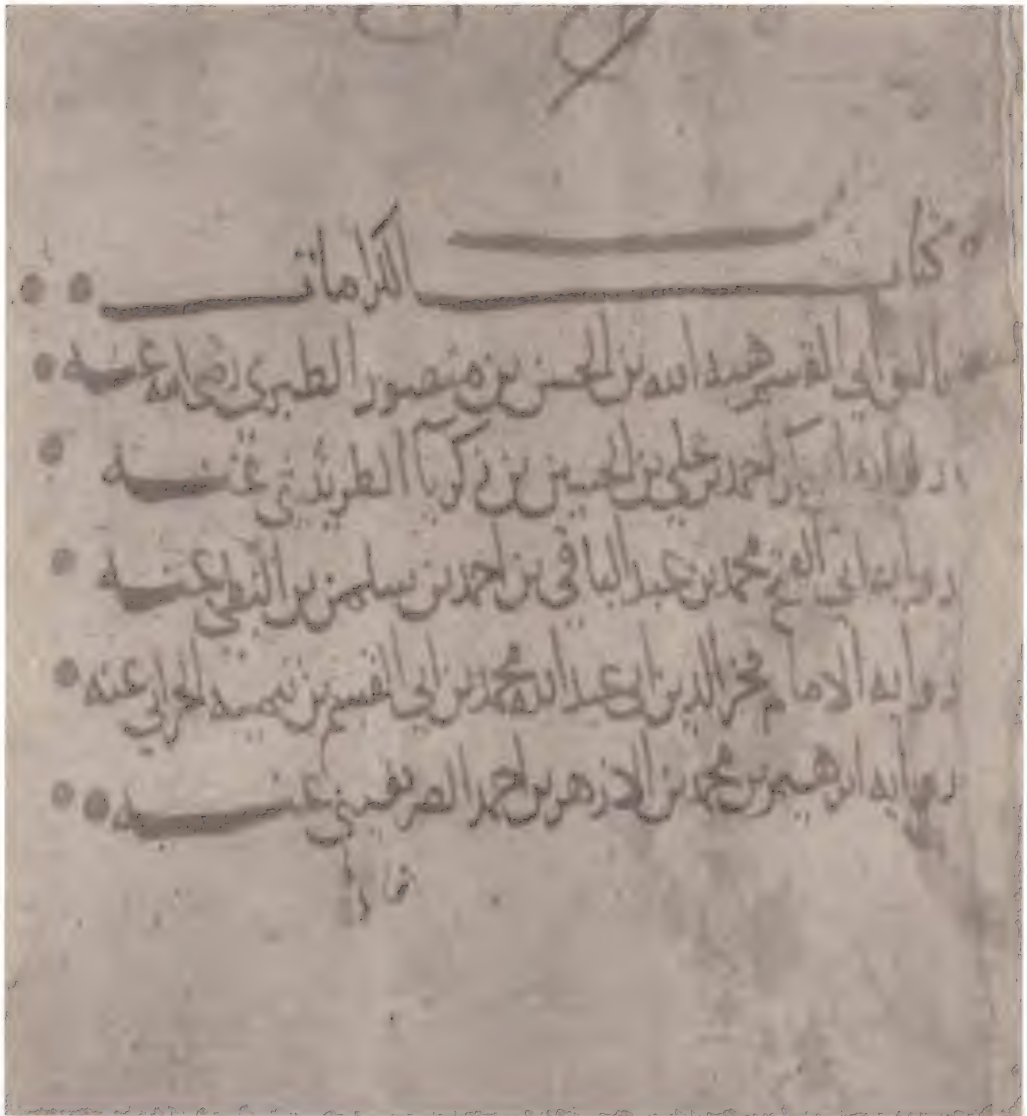 كتاب الكرامات
تاليف ابي القسم هبة الله بن الحسن بن منصور الطبري رضي الله عنه
رواية احمد بن علي بن الحسين بن زكريا الطريثيثي عنه
رواية ابي الفتح محمد بن عبد الباقي بن احمد بن سليمن بن البطي عنه
رواية الامام فخر الدين ابي عبد الله محمد بن ابي القسم بن تيمية الحراني عنه
رواية ابرهيم بن محمد بن الازهر بن احمد الصريفيني عنه